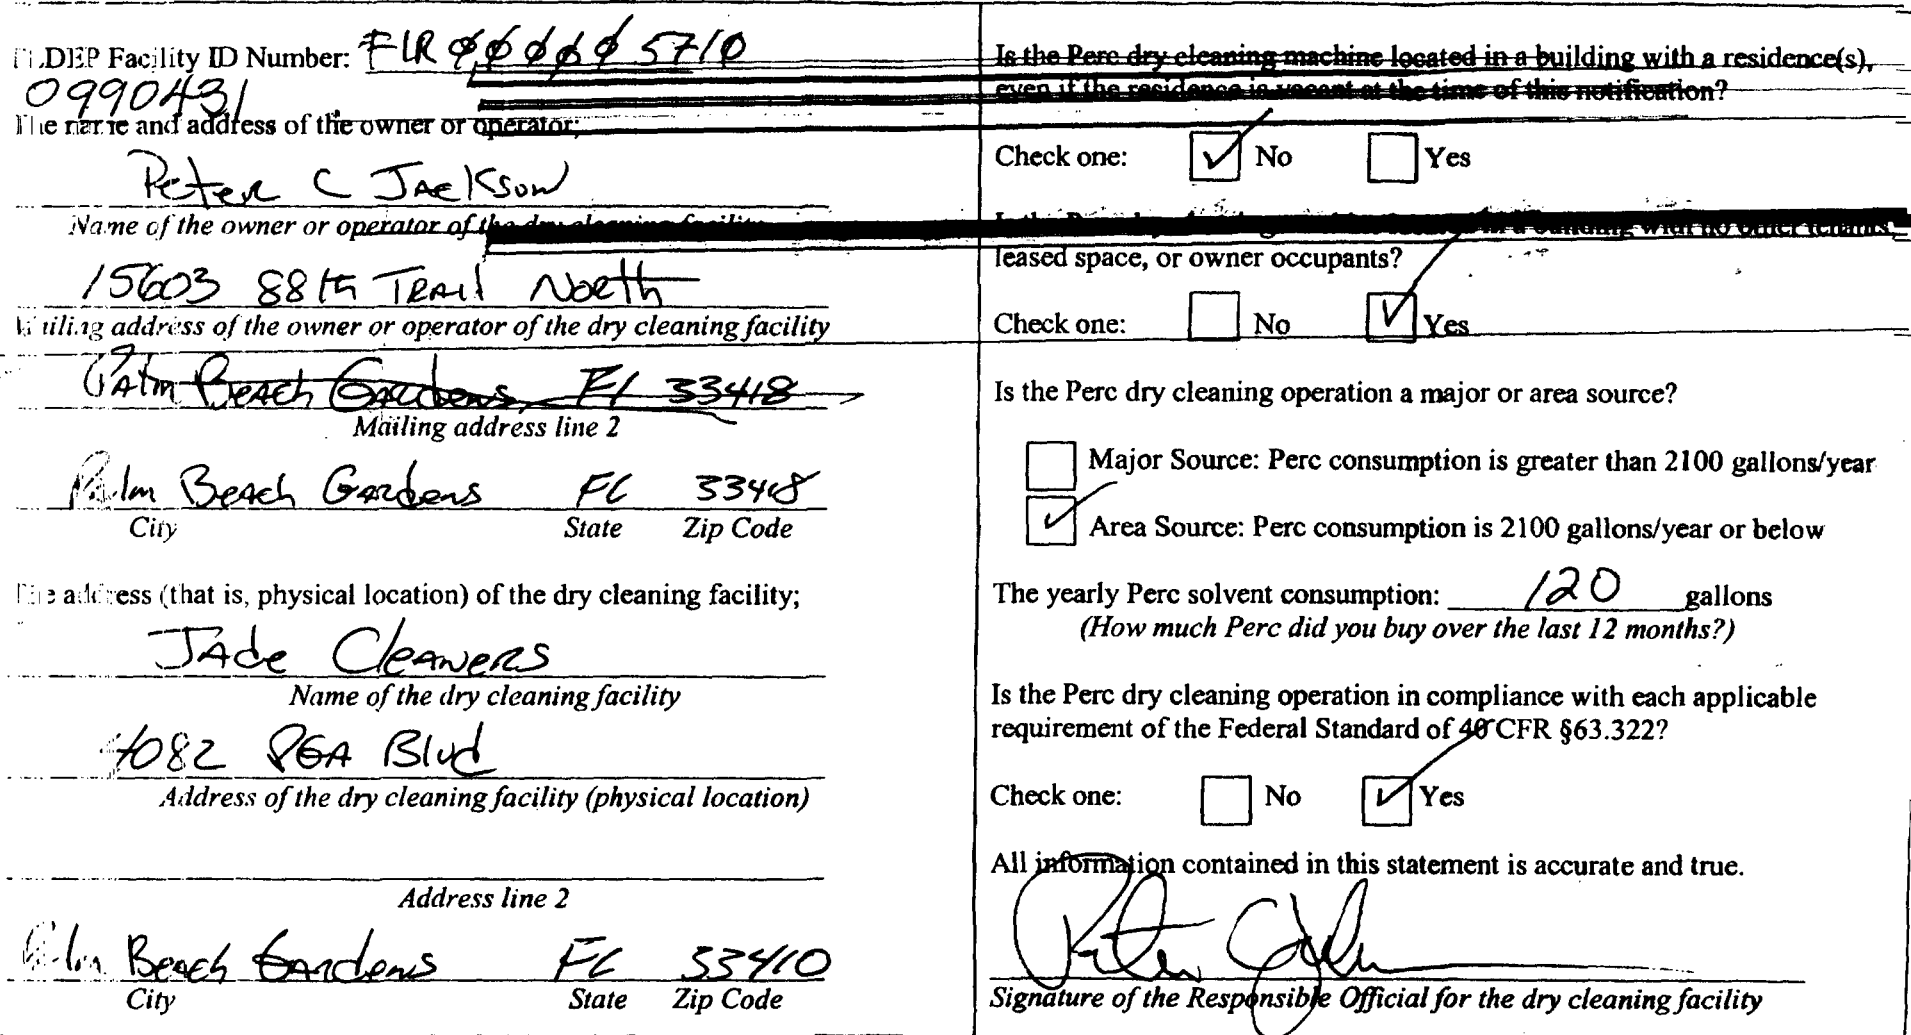 DEP Facility ID Number: FLR 000005710
0990431
The name and address of the owner or operator;
Peter C Jackson
Name of the owner or operator of the dry cleaning facility
15603 88th Trail North
Mailing address of the owner or operator of the dry cleaning facility
Palm Beach Gardens, Fl 33418
Mailing address line 2
Palm Beach Gardens FL 33418
City State Zip Code
The address (that is, physical location) of the dry cleaning facility;
Jade Cleaners
Name of the dry cleaning facility
4082 PGA Blvd
Address of the dry cleaning facility (physical location)
Address line 2
Palm Beach Gardens FL 33410
City State Zip Code
Is the Perc dry cleaning machine located in a building with a residence(s),
even if the residence is vacant at the time of this notification?
Check one: No Yes
Is the Perc dry in a building with no other tenants,
leased space, or owner occupants?
Check one: No Yes
Is the Perc dry cleaning operation a major or area source?
Major Source: Perc consumption is greater than 2100 gallons/year
Area Source: Perc consumption is 2100 gallons/year or below
The yearly Perc solvent consumption: 120 gallons
(How much Perc did you buy over the last 12 months?)
Is the Perc dry cleaning operation in compliance with each applicable
requirement of the Federal Standard of 40 CFR §63.322?
Check one: No Yes
All information contained in this statement is accurate and true.
Signature of the Responsible Official for the dry cleaning facility